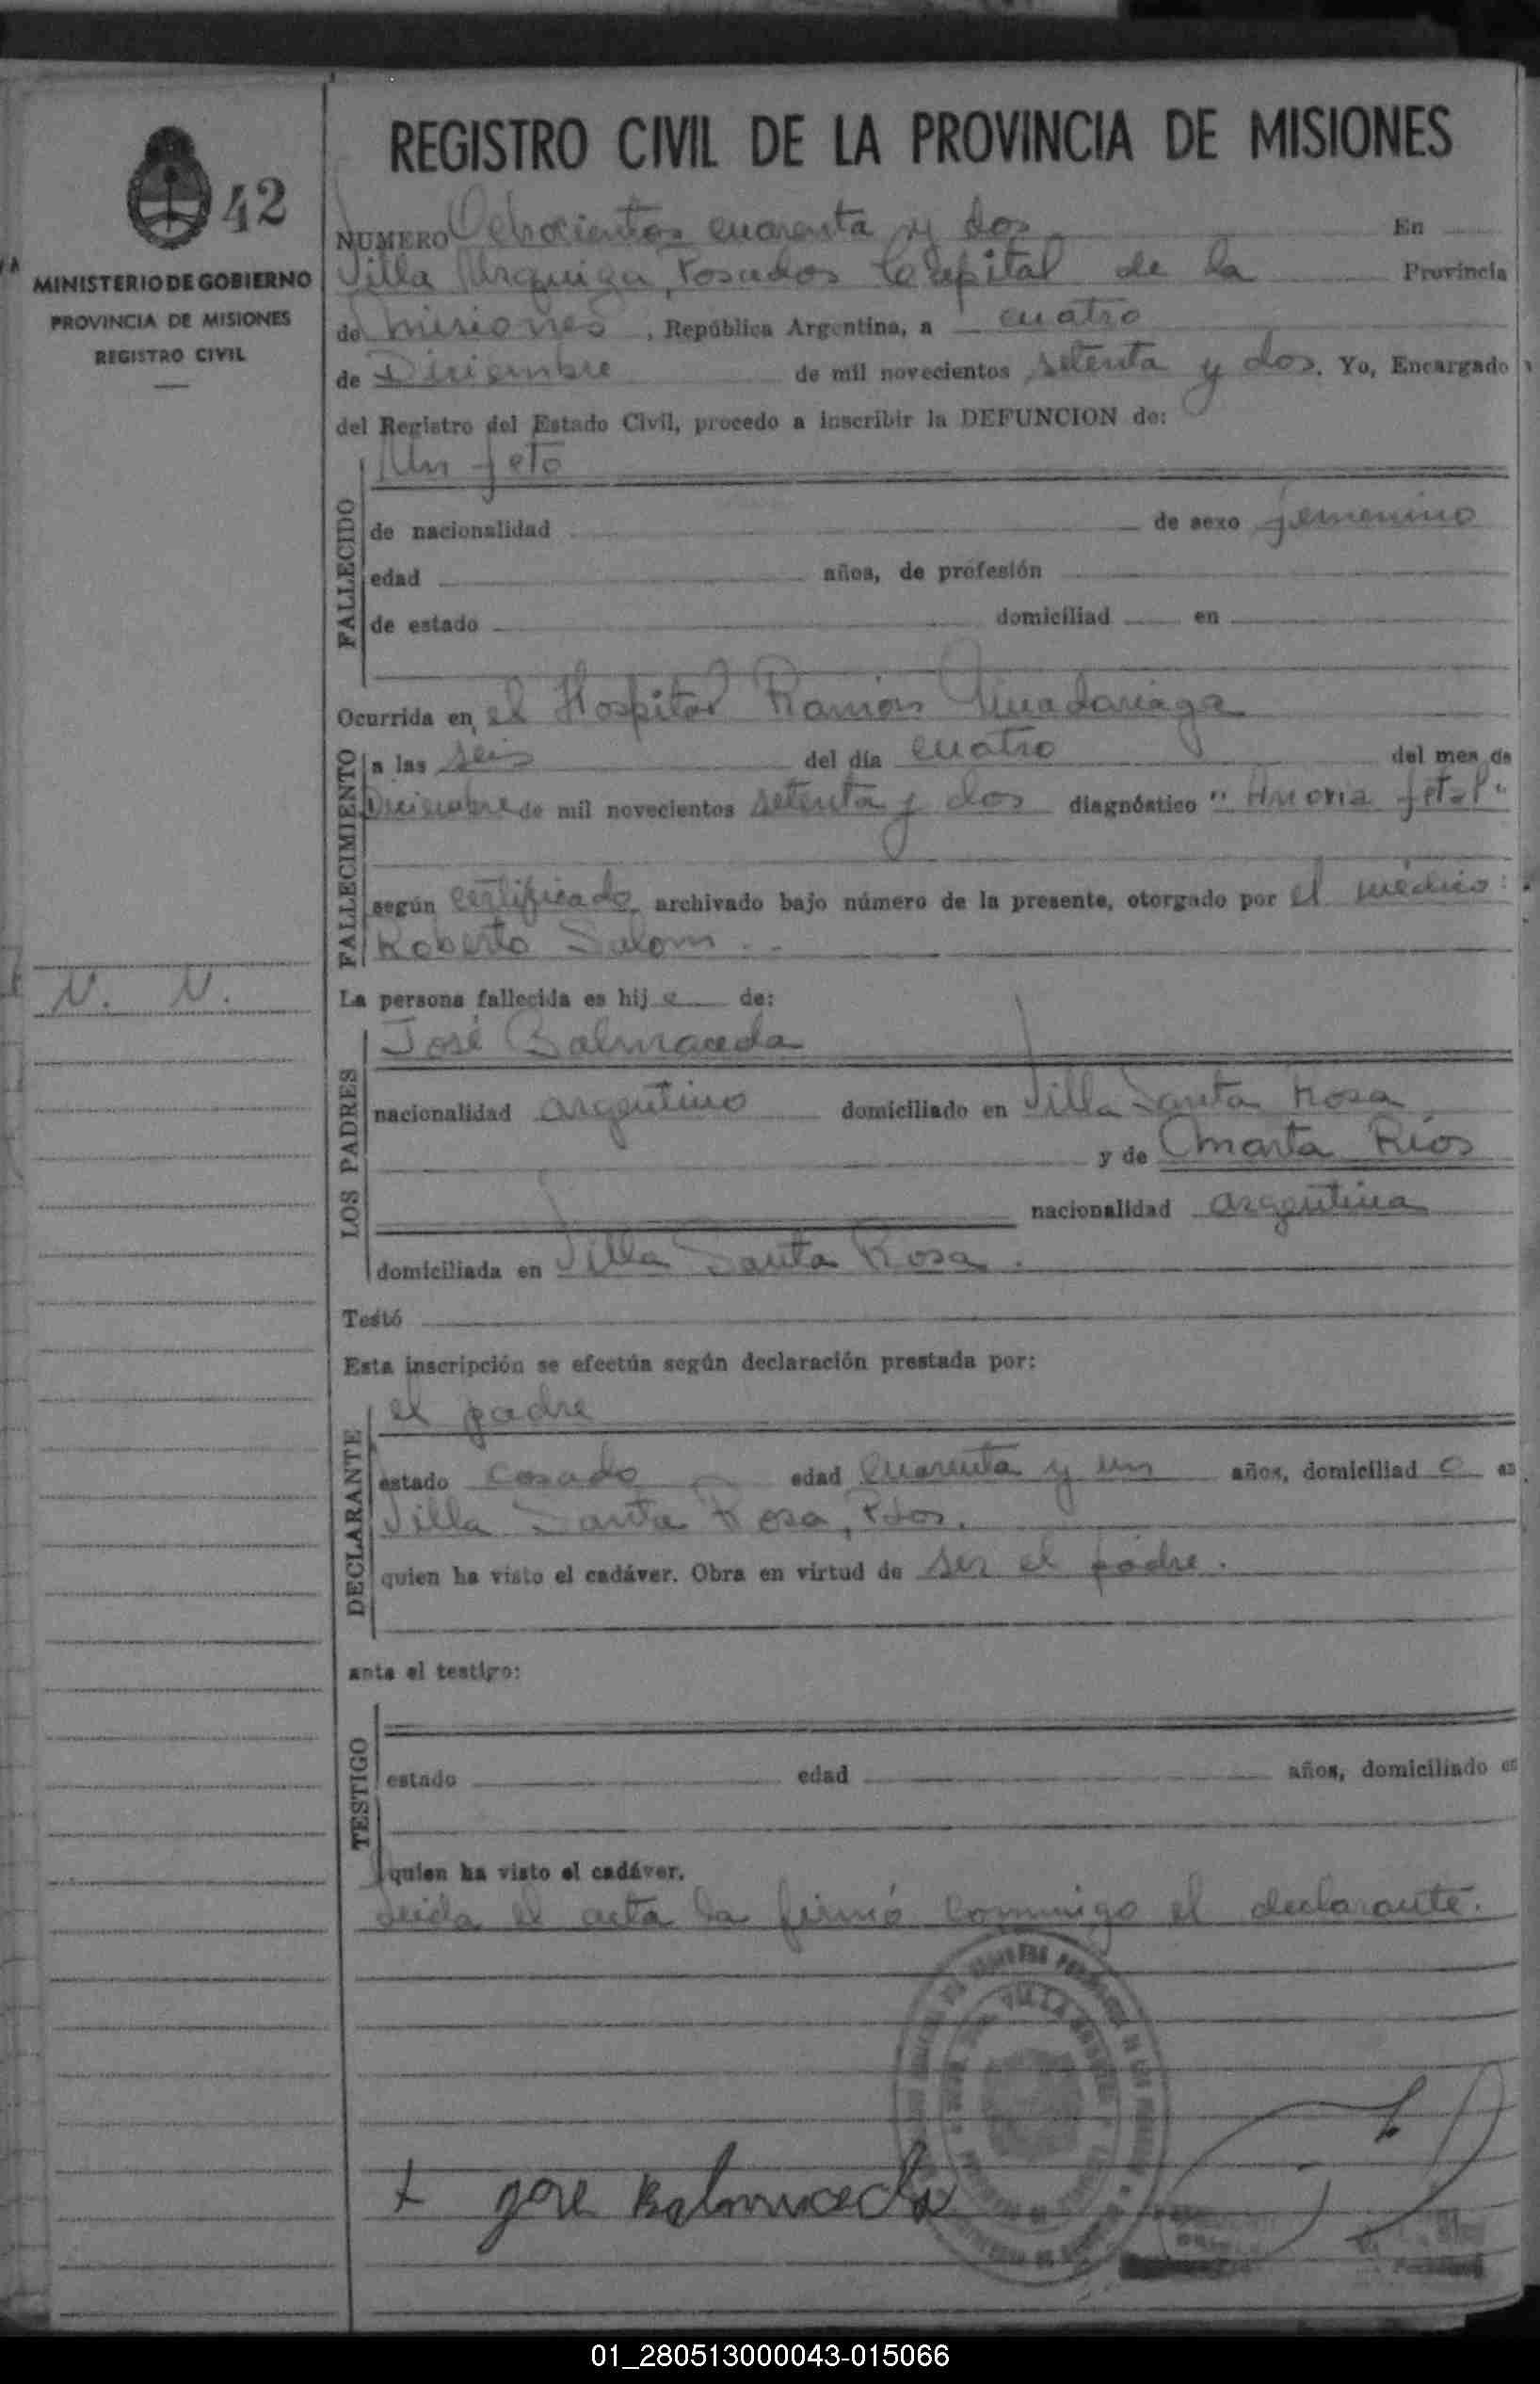 REGISTRO CIVIL DE LA PROVINCIA DE MISIONES
42
MINISTERIO DE GOBIERNO
PROVINCIA DE MISIONES
REGISTRO CIVIL
NUMERO Ochocientos cuarenta y dos En
Villa Urquiza, Posadas Capital de la Provincia
de Misiones, República Argentina, a cuatro
de Diciembre de mil novecientos setenta y dos. Yo, Encargado
del Registro del Estado Civil, procedo a inscribir la DEFUNCION de:
Un feto
FALLECIDO
de nacionalidad de sexo femenino
edad años, de profesión
de estado domiciliad en
Ocurrida en el Hospital Ramón Madariaga
FALLECIMIENTO
a las seis del día cuatro del mes de
Diciembre de mil novecientos setenta y dos diagnóstico " Anoxia fetal"
según certificado archivado bajo número de la presente, otorgado por el médico:
Roberto Salom.
N. N.
La persona fallecida es hij de:
LOS PADRES
José Balmaceda
nacionalidad argentino domiciliado en Villa Santa Rosa
y de Marta Ríos
nacionalidad argentina
domiciliada en Villa Santa Rosa.
Testó
Esta inscripción se efectúa según declaración prestada por:
DECLARANTE
el padre
estado casado edad cuarenta y un años, domiciliad o en
Villa Santa Rosa, Pdos.
quien ha visto el cadáver. Obra en virtud de ser el padre.
ante el testigo:
TESTIGO
estado edad años, domiciliado en
quien ha visto el cadáver.
Leída el acta la firmó conmigo el declarante.
VILLA
+ Jose Balmaceda
01_280513000043-015066